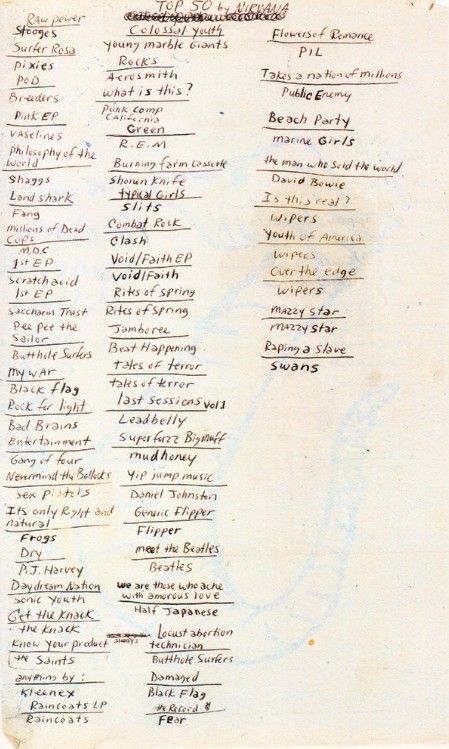 TOP 50 by NIRVANA
Raw power
Stooges
Surfer Rosa
Pixies
POD
Breeders
Pink EP
Vaselines
Philosophy of the
World
Shaggs
Land shark
Fang
millions of Dead
Cops
M.D.C
1st EP
Scratch acid
1st EP
Saccharin Trust
Pee Pee the
Sailor
Butthole Surfers
My WAR
Black flag
Rock for light
Bad Brains
Entertainment
Gang of four
Nevermind the Bollocks
sex pistols
Its only Right and
natural
Frogs
Dry
P.J. Harvey
Daydream Nation
Sonic youth
Get the Knack
the Knack
Know your product
the Saints
anything by:
Kleenex
Raincoats LP
Raincoats
Colossal youth
Young marble Giants
Rocks
Aerosmith
what is this?
Punk comp
California
Green
R.E.M
Burning farm cassette
Shonen Knife
typical Girls
Slits
Combat Rock
Clash
Void/Faith EP
Void/Faith
Rites of Spring
Rites of Spring
Jamboree
Beat Happening
tales of terror
tales of terror
last sessions vol 1
Leadbelly
Superfuzz Bigmuff
mudhoney
Yip jump music
Daniel Johnston
Generic Flipper
Flipper
meet the Beatles
Beatles
we are those who ache
with amorous love
Half Japanese
Locust abortion
technician
Butthole Surfers
Damaged
Black Flag
the Record
Fear
Flowers of Romance
PIL
Takes a nation of millions
Public Enemy
Beach Party
marine Girls
the man who sold the world
David Bowie
Is this real?
Wipers
Youth of America
Wipers
Over the edge
Wipers
mazzy star
mazzy star
Raping a slave
Swans